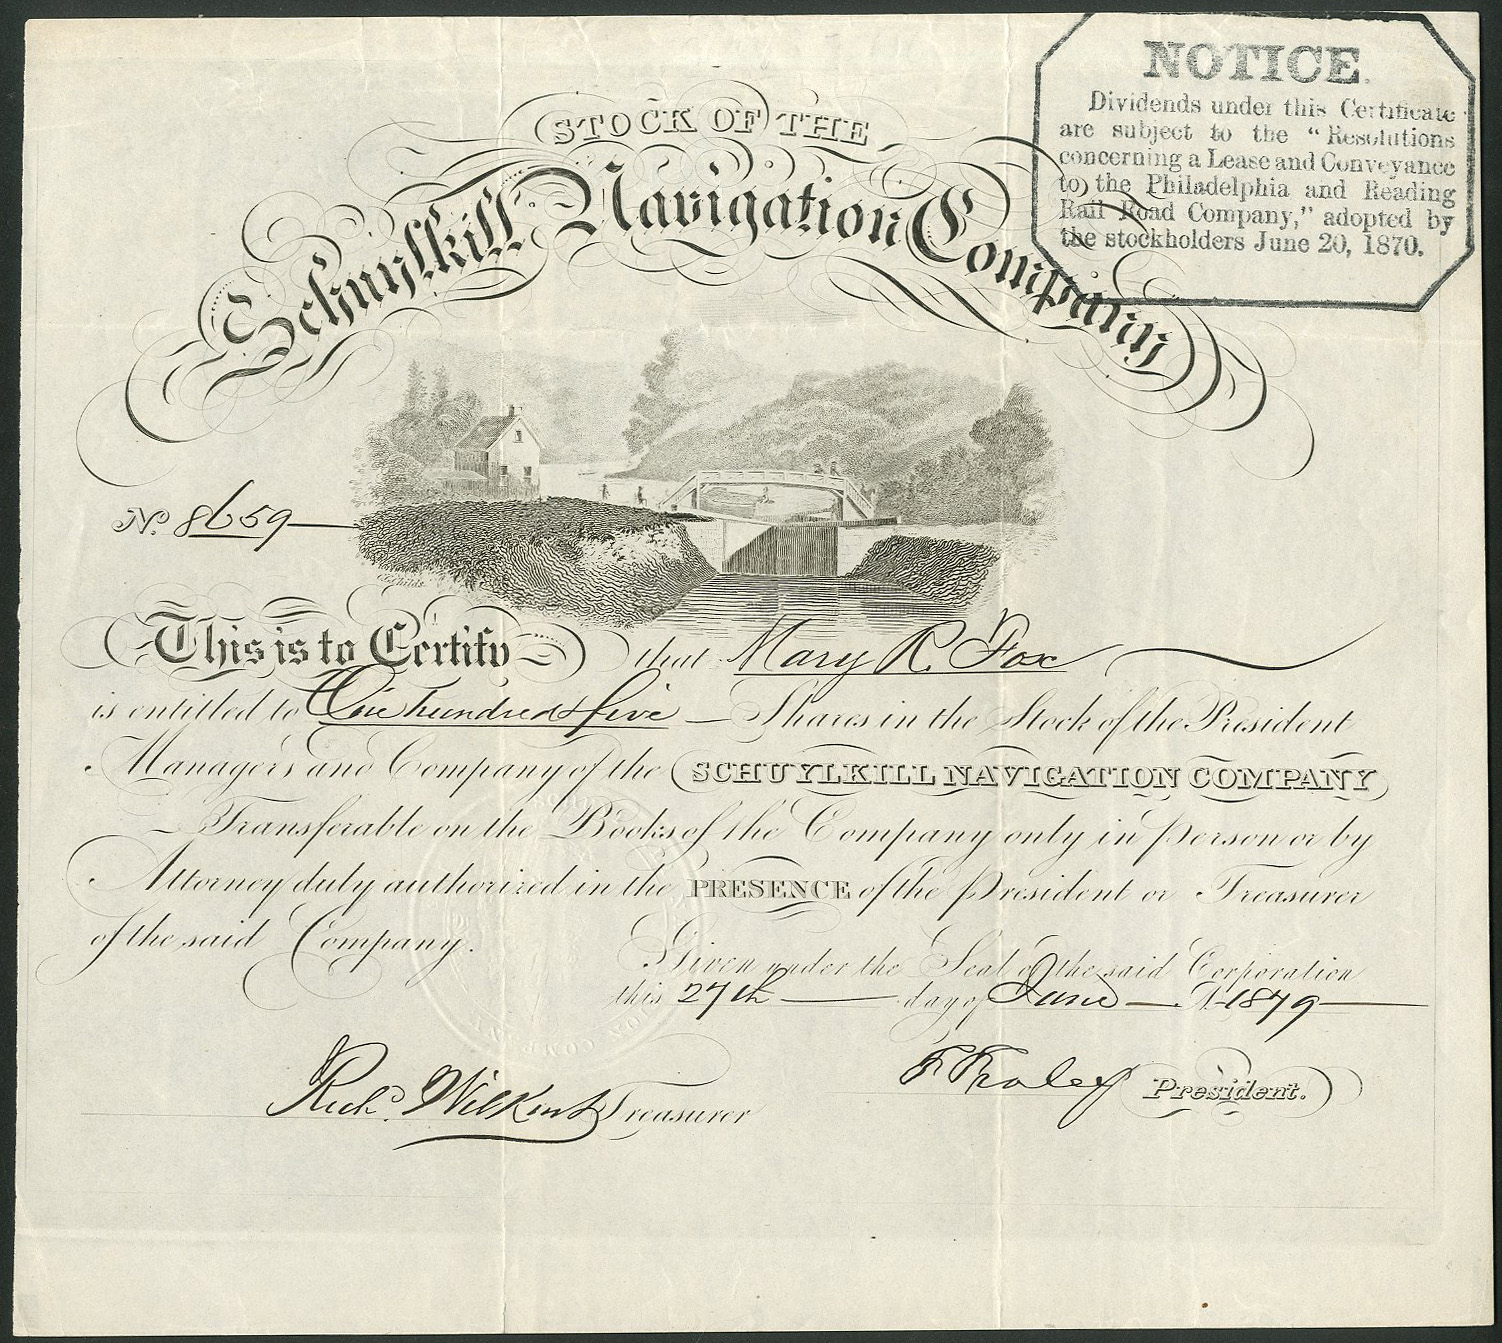 NOTICE.
Dividends under this Certificate
are subject to the "Resolutions
concerning a Lease and Conveyance
to the Philadelphia and Reading
Rail Road Company," adopted by
the stockholders June 20, 1870.
STOCK OF THE
Schuylkill Navigation Company
No. 8659
C.G. Childs
This is to Certify that Mary R. Fox
is entitled to One hundred & five Shares in the Stock of the President
Managers and Company of the SCHUYLKILL NAVIGATION COMPANY
Transferable on the Books of the Company only in person or by
Attorney duly authorized in the PRESENCE of the President or Treasurer
of the said Company.
Given under the Seal of the said Corporation
this 27th day of June A. 1879
F Fraley President.
Richd. Wilkins Treasurer